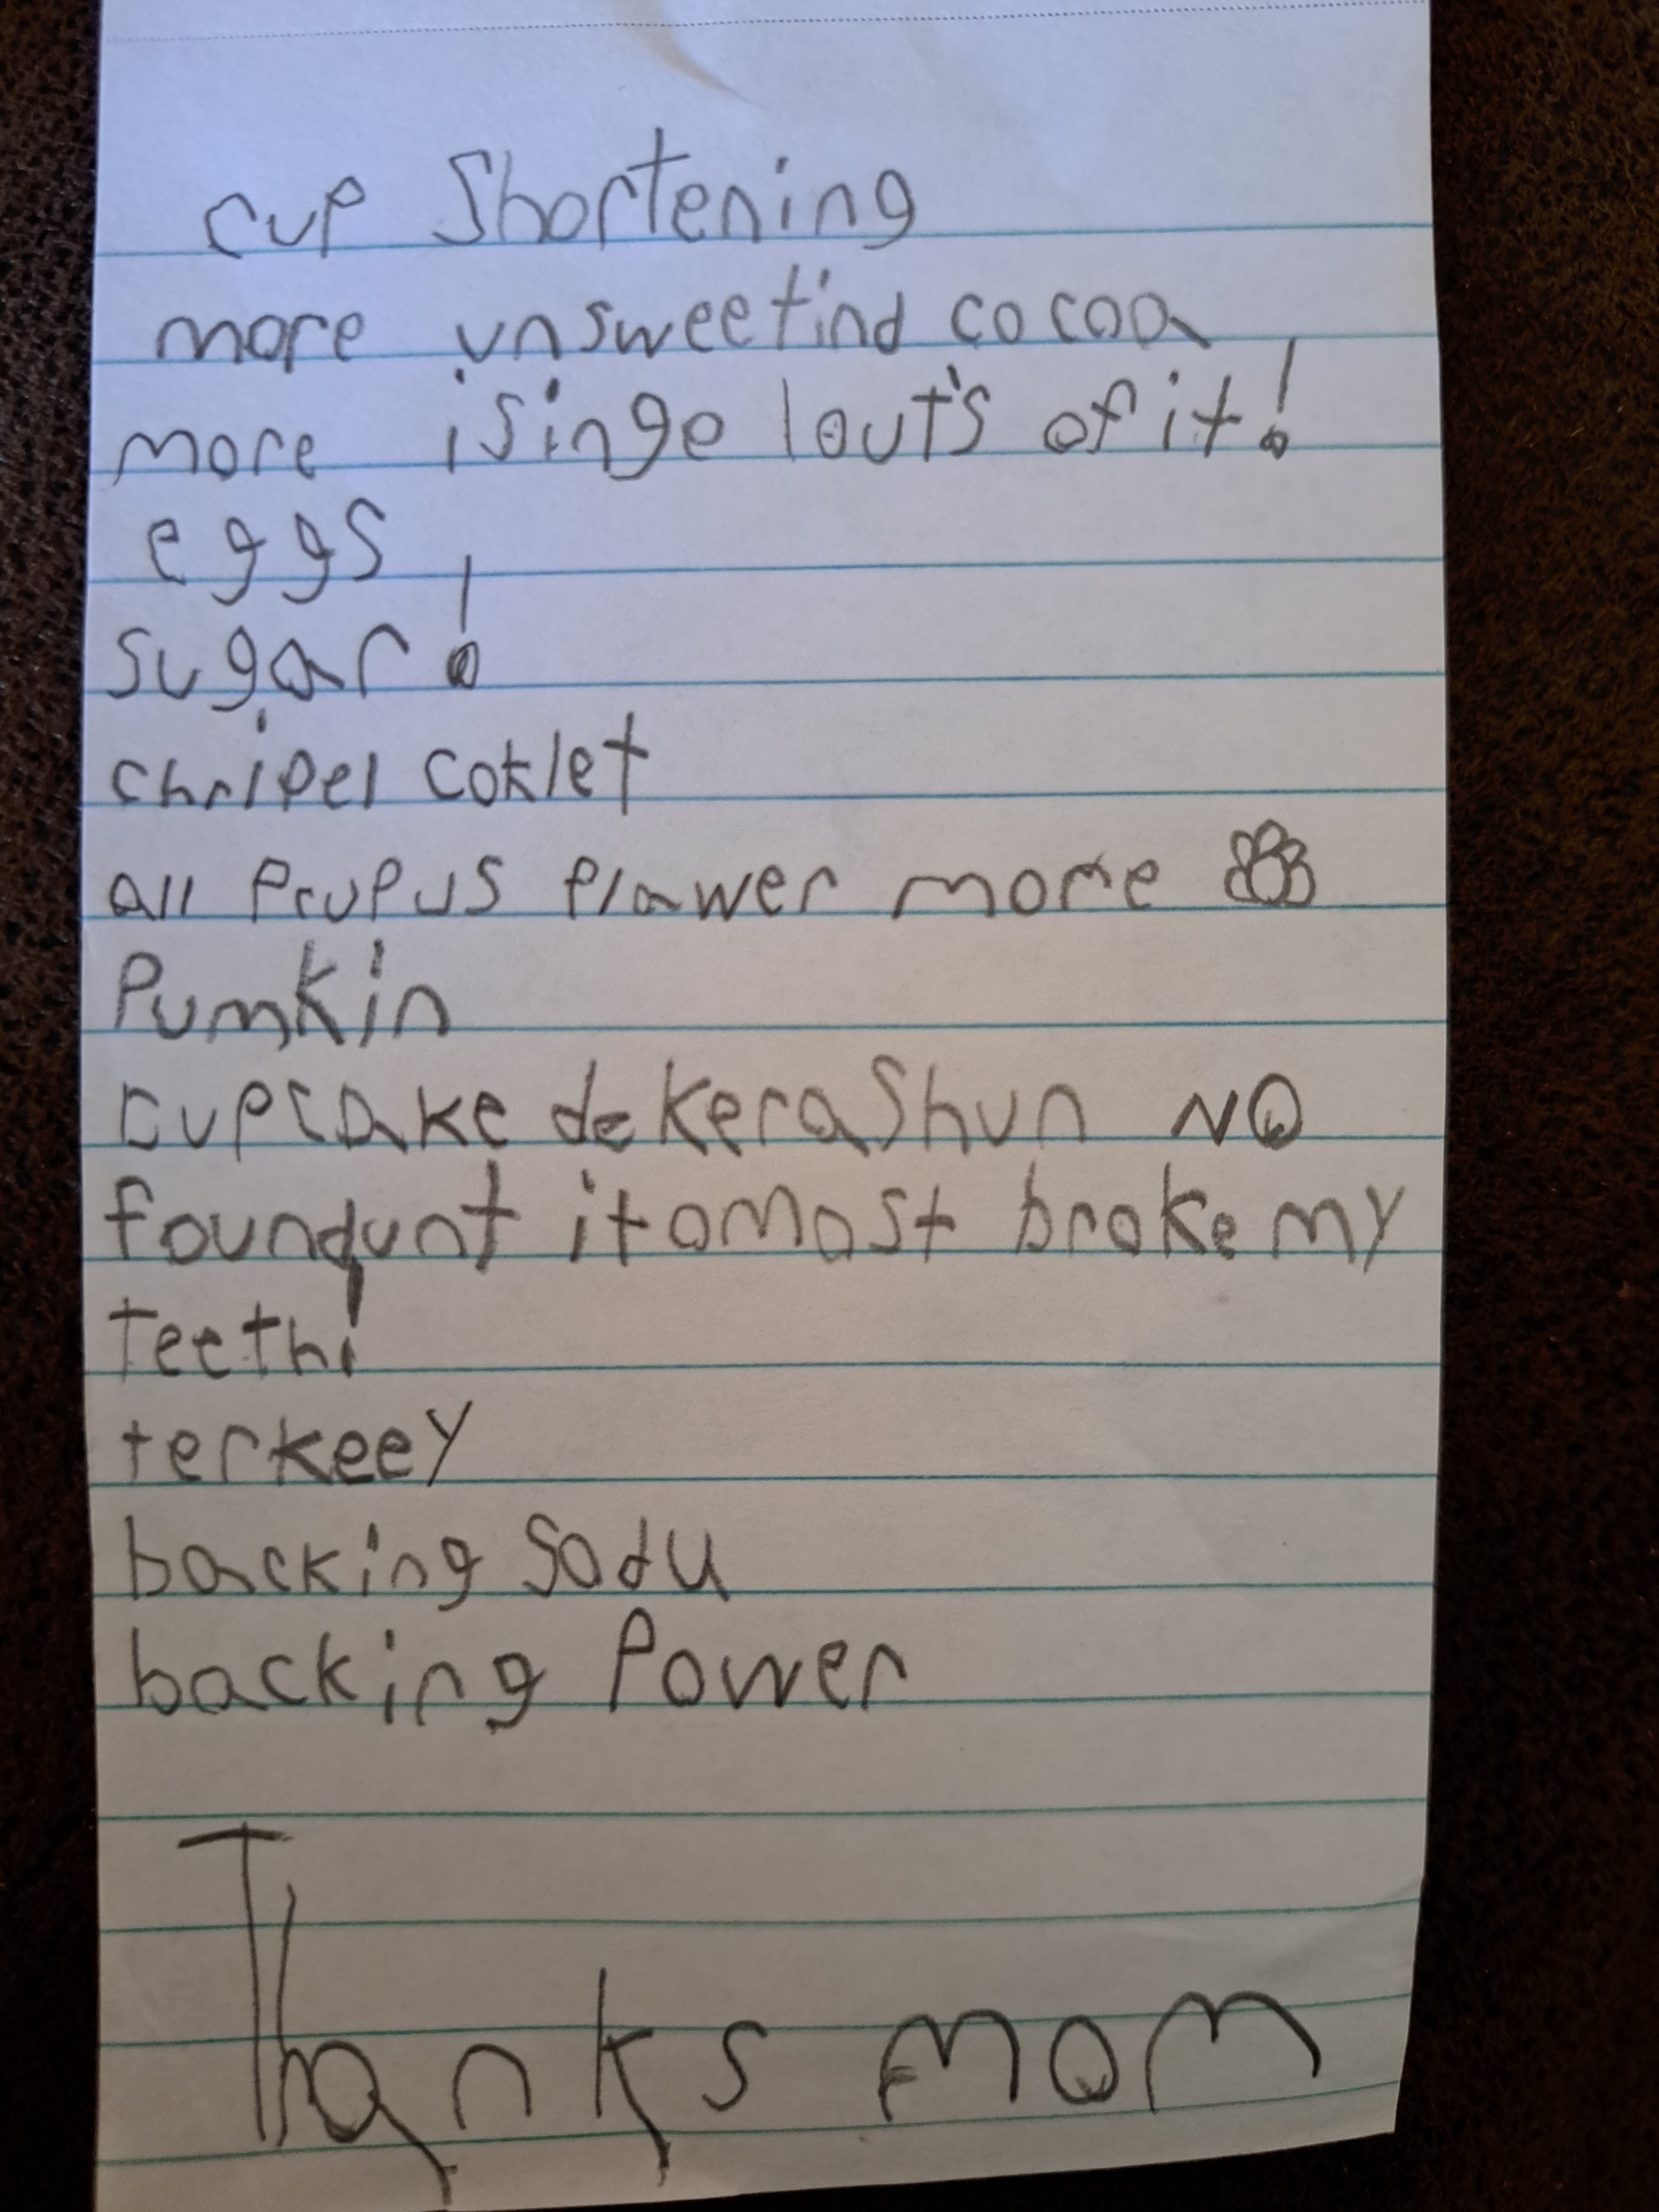 cup Shortening
more unsweetind cocoa
more isinge lout's of it!
eggs
sugar!
chripel coklet
all Prupus flawer more
Pumkin
cupcake dekerashun NO
foundunt it omost broke my
Teeth!
terkeey
backing Sodu
backing Power
Thanks mom